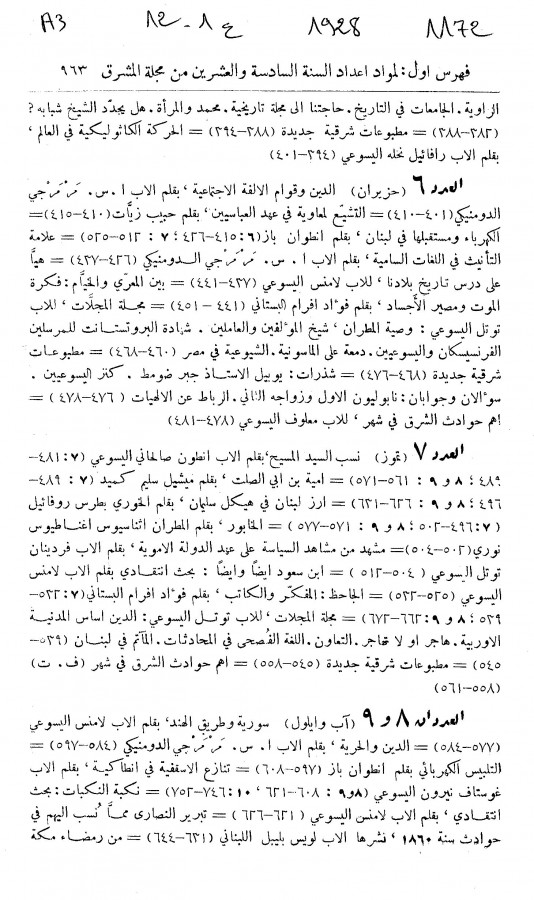 A3 12-1ع 1928 1172
فهرس اول: لمواد اعداد السنة السادسة والعشرين من مجلة المشرق ٩٦٣
الراوية. الجامعات في التاريخ. حاجتنا الى مجلة تاريخية. محمد والمرأة. هل يجدّد الشيخ شبابه؟
(٣٨٢–٣٨٨) = مطبوعات شرقية جديدة (٣٨٨–٣٩٤) = الحركة الكاثوليكية في العالم،
بقلم الاب رافائيل نخله اليسوعي (٣٩٤–٤٠١)
العدد ٦ (حزيران) الدين وقوام الالفة الاجتماعية، بقلم الاب ا. س. مَرمَرجي
الدومنيكي (٤٠١–٤١٠) = التشيّع لمعاوية في عهد العباسيين، بقلم حبيب زيّات (٤١٠–٤١٥) =
الكهرباء ومستقبلها في لبنان، بقلم انطوان باز (٦: ٤١٥–٤٢٦؛ ٧: ٥١٢–٥٢٥) = علامة
التأنيث في اللغات السامية، بقلم الاب ا. س. مَرمَرجي الدومنيكي (٤٢٦–٤٣٧) = هيَّا
على درس تاريخ بلادنا، للاب لامنس اليسوعي (٤٣٧–٤٤١) = بين المعرّي والخيَّام: فكرة
الموت ومصير الأجساد، بقلم فوّاد افرام البستاني (٤٤١–٤٥١) = مجلة المجلّات، للاب
توتل اليسوعي: وصية المطران، شيخ المؤلفين والعاملين. شهادة البروتستانت للمرسلين
الفرنسيسكان واليسوعيين. دمعة على الماسونية. الشيوعية في مصر (٤٦٠–٤٦٨) = مطبوعات
شرقية جديدة (٤٦٨–٤٧٦) = شذرات: يوبيل الاستاذ جبر ضومط. كنز اليسوعيين.
سوّالان وجوابان: نابوليون الاول وزواجه الثاني. الرباط عن الالهيات (٤٧٦–٤٧٨) =
اهم حوادث الشرق في شهر، للاب معلوف اليسوعي (٤٧٨–٤٨١)
العدد ٧ (تموز) نسب السيد المسيح، بقلم الاب انطون صالحاني اليسوعي (٧: ٤٨١–
٤٨٩؛ ٨ و ٩: ٥٦١–٥٧١) = امية بن ابي الصلت، بقلم ميشيل سليم كميد (٧: ٤٨٩–
٤٩٦؛ ٨ و ٩: ٦٢٦–٦٣١) = ارز لبنان في هيكل سليمان، بقلم الخوري بطرس روفائيل
(٧: ٤٩٦–٥٠٢؛ ٨ و ٩: ٥٧١–٥٧٧) = الخابور، بقلم المطران اثناسيوس اغناطيوس
نوري (٥٠٢–٥٠٤) = مشهد من مشاهد السياسة على عهد الدولة الاموية، بقلم الاب فردينان
توتل اليسوعي (٥٠٤–٥١٢) = ابن سعود ايضًا وايضًا: بحث انتقادي بقلم الاب لامنس
اليسوعي (٥٢٥–٥٣٢) = الجاحظ: المفكّر والكاتب، بقلم فوّاد افرام البستاني (٧: ٥٣٢–
٥٣٩؛ ٨ و ٩: ٦٦٢–٦٧٢) = مجلة المجلات، للاب توتل اليسوعي: الدين اساس المدنية
الاوربية. هاجر او لا تهاجر. التعاون. اللغة الفُصحى في المحادثات. المآتم في لبنان (٥٣٩–
٥٤٥) = مطبوعات شرقية جديدة (٥٤٥–٥٥٨) = اهم حوادث الشرق في شهر (ف. ت)
(٥٥٨–٥٦١)
العددان ٨ و ٩ (آب وايلول) سورية وطريق الهند، بقلم الاب لامنس اليسوعي
(٥٧٧–٥٨٤) = الدين والحرية، بقلم الاب ا. س. مَرمَرجي الدومنيكي (٥٨٤–٥٩٧) =
التلبيس الكهربائي بقلم انطوان باز (٥٩٧–٦٠٨) = تنازع الاسقفية في انطاكية، بقلم الاب
غوستاف نيرون اليسوعي (٨ و ٩: ٦٠٨–٦٢١، ١٠: ٧٤٦–٧٥٢) = نكبة النكبات: بحث
انتقادي، بقلم الاب لامنس اليسوعي (٦٢١–٦٢٦) = تبرير النصارى ممّا نُسب اليهم في
حوادث سنة ١٨٦٠، نشرها الاب لويس بليبل اللبناني (٦٣١–٦٤٤) = من رمضاء مكة